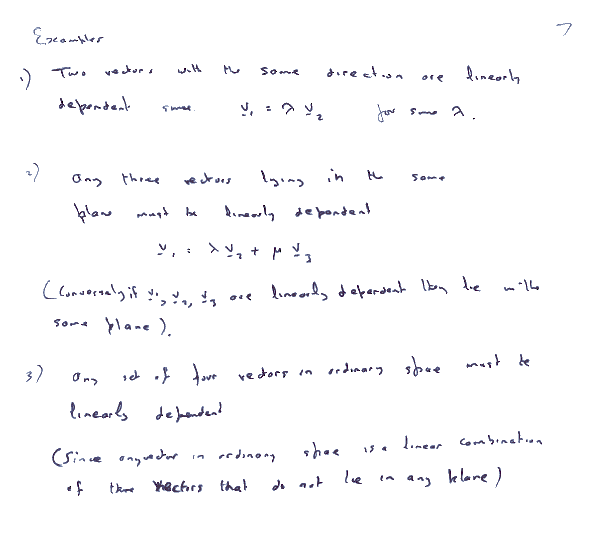 Examples 7
1) Two vectors with the same direction are linearly
dependent since v₁ = λ v₂ for some λ.
2) Any three vectors lying in the same
plane must be linearly dependent
v₁ = λ v₂ + μ v₃
(Conversely if v₁, v₂, v₃ are linearly dependent they lie in the
same plane).
3) Any set of four vectors in ordinary space must be
linearly dependent
(Since any vector in ordinary space is a linear combination
of three vectors that do not lie in any plane)